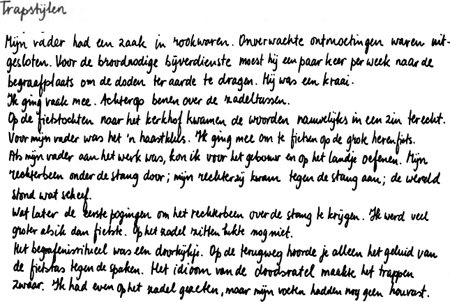 Trapstijlen
Mijn vader had een zaak in rookwaren. Onverwachte ontmoetingen waren uit-
gesloten. Voor de broodnodige bijverdienste moest hij een paar keer per week naar de
begraafplaats om de doden ter aarde te dragen. Hij was een kraai.
Ik ging vaak mee. Achterop benen over de zadeltassen.
Op de fietstochten naar het kerkhof kwamen de woorden nauwelijks in een zin terecht.
Voor mijn vader was het 'n haastklus. Ik ging mee om te fietsen op de grote herenfiets.
Als mijn vader aan het werk was, kon ik voor het gebouw en op het landje oefenen. Mijn
rechterbeen onder de stang door; mijn rechterzij kwam tegen de stang aan; de wereld
stond wat scheef.
Wat later de eerste pogingen om het rechterbeen over de stang te krijgen. Ik werd veel
groter als ik dan fietste. Op het zadel zitten lukte nog niet.
Het begrafenisritueel was een doorkijkje. Op de terugweg hoorde je alleen het geluid van
de fietstas tegen de spaken. Het idioom van de doodsratel maakte het trappen
zwaar. Ik had even op het zadel gezeten, maar mijn voeten hadden nog geen houvast.